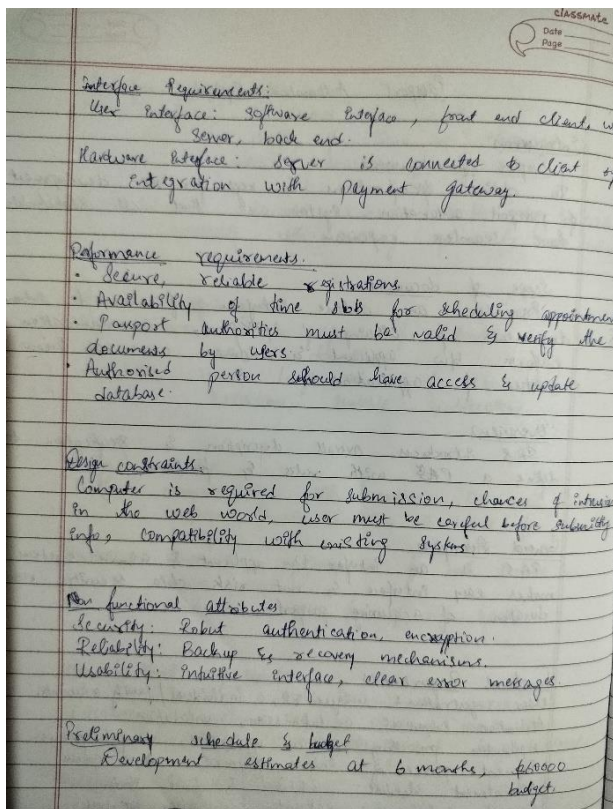 classmate
Date
Page
Interface Requirements:
User Interface: Software Interface, front end client, w
server, back end.
Hardware Interface: Server is connected to client
Integration with payment gateway.
Performance requirements.
• Secure, reliable registrations
• Availability of time slots for scheduling appointmen
• Passport authorities must be valid & verify the
documents by users.
• Authorised person should have access & update
database.
Design constraints.
Computer is required for submission, chances of intrusio
in the web world, user must be careful before
info, compatibility with existing systems.
Non functional attributes
Security: Robust authentication, encryption.
Reliability: Backup & recovery mechanisms.
Usability: Intuitive interface, clear error messages.
Preliminary schedule & budget
Development estimates at 6 months,
budget.